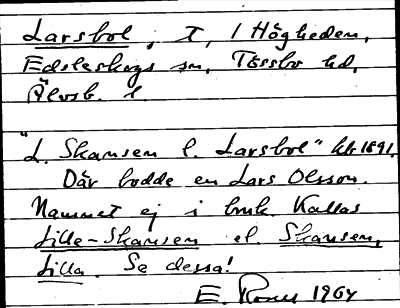 Larsbol, T, 1 Högheden,
Edsleskogs sn, Tössbo hd,
Älvsb. l.
"L. Skansen l. Larsbol" kb 1891.
Där bodde en Lars Olsson.
Namnet ej i bruk. Kallas
Lilla-Skansen el. Skansen,
Lilla. Se dessa!
E. 1964